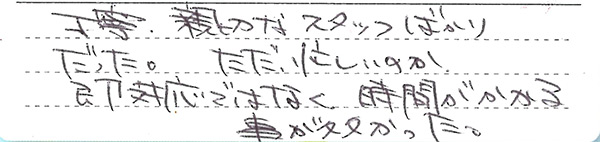 丁寧、親切なスタッフばかり
だった。 ただ、忙しいのか
即対応ではなく 時間がかかる
事が多かった。